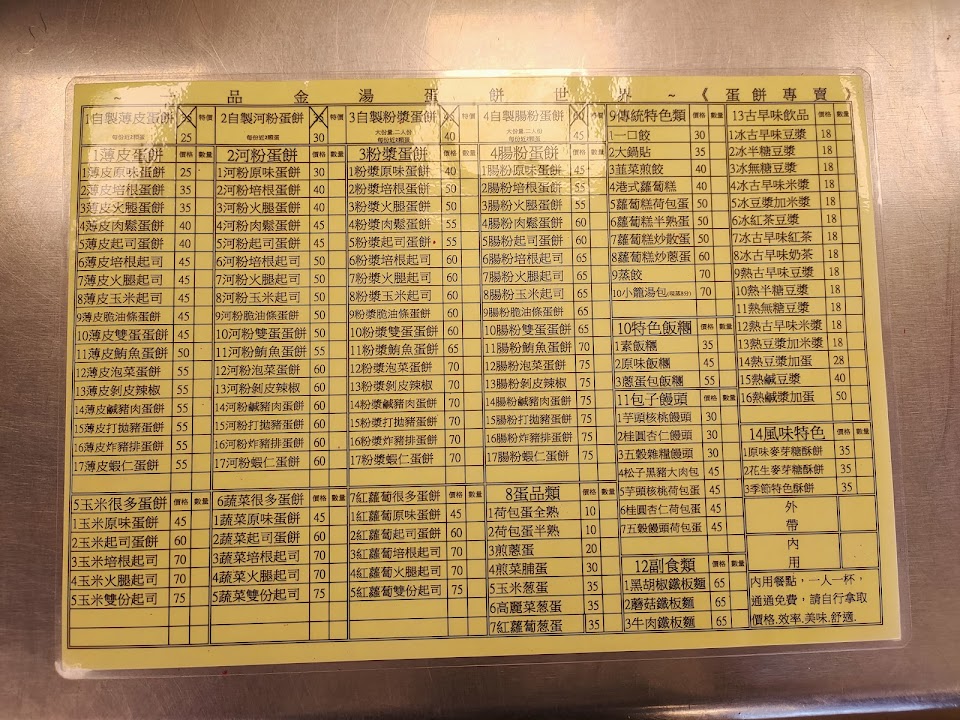 ~ 品 金 湯 蛋 餅 世 界 ~ 《 蛋 餅 專 賣 》
1自製薄皮蛋餅 特價
每份近2顆蛋 25
1薄皮蛋餅 價格 數量
1薄皮原味蛋餅 25
2薄皮培根蛋餅 35
3薄皮火腿蛋餅 35
4薄皮肉鬆蛋餅 40
5薄皮起司蛋餅 40
6薄皮培根起司 45
7薄皮火腿起司 45
8薄皮玉米起司 45
9薄皮脆油條蛋餅 45
10薄皮雙蛋蛋餅 50
11薄皮鮪魚蛋餅 50
12薄皮泡菜蛋餅 55
13薄皮剝皮辣椒 55
14薄皮鹹豬肉蛋餅 55
15薄皮打拋豬蛋餅 55
16薄皮炸豬排蛋餅 55
17薄皮蝦仁蛋餅 55
5玉米很多蛋餅 價格 數量
1玉米原味蛋餅 45
2玉米起司蛋餅 60
3玉米培根起司 70
4玉米火腿起司 70
5玉米雙份起司 75
2自製河粉蛋餅 特價
每份近2顆蛋 30
2河粉蛋餅 價格 數量
1河粉原味蛋餅 30
2河粉培根蛋餅 40
3河粉火腿蛋餅 40
4河粉肉鬆蛋餅 45
5河粉起司蛋餅 45
6河粉培根起司 50
7河粉火腿起司 50
8河粉玉米起司 50
9河粉脆油條蛋餅 50
10河粉雙蛋蛋餅 50
11河粉鮪魚蛋餅 55
12河粉泡菜蛋餅 60
13河粉剝皮辣椒 60
14河粉鹹豬肉蛋餅 60
15河粉打拋豬蛋餅 60
16河粉炸豬排蛋餅 60
17河粉蝦仁蛋餅 60
6蔬菜很多蛋餅 價格 數量
1蔬菜原味蛋餅 45
2蔬菜起司蛋餅 60
3蔬菜培根起司 70
4蔬菜火腿起司 70
5蔬菜雙份起司 75
3自製粉漿蛋餅 特價
大份量.二人份
每份近3顆蛋 40
3粉漿蛋餅 價格 數量
1粉漿原味蛋餅 40
2粉漿培根蛋餅 50
3粉漿火腿蛋餅 50
4粉漿肉鬆蛋餅 55
5粉漿起司蛋餅 55
6粉漿培根起司 60
7粉漿火腿起司 60
8粉漿玉米起司 60
9粉漿脆油條蛋餅 60
10粉漿雙蛋蛋餅 60
11粉漿鮪魚蛋餅 65
12粉漿泡菜蛋餅 70
13粉漿剝皮辣椒 70
14粉漿鹹豬肉蛋餅 70
15粉漿打拋豬蛋餅 70
16粉漿炸豬排蛋餅 70
17粉漿蝦仁蛋餅 70
7紅蘿蔔很多蛋餅 價格 數量
1紅蘿蔔原味蛋餅 45
2紅蘿蔔起司蛋餅 60
3紅蘿蔔培根起司 70
4紅蘿蔔火腿起司 70
5紅蘿蔔雙份起司 75
4自製腸粉蛋餅 特價
大份量.二人份
每份近3顆蛋 45
4腸粉蛋餅 價格 數量
1腸粉原味蛋餅 45
2腸粉培根蛋餅 55
3腸粉火腿蛋餅 55
4腸粉肉鬆蛋餅 60
5腸粉起司蛋餅 60
6腸粉培根起司 65
7腸粉火腿起司 65
8腸粉玉米起司 65
9腸粉脆油條蛋餅 65
10腸粉雙蛋蛋餅 65
11腸粉鮪魚蛋餅 70
12腸粉泡菜蛋餅 75
13腸粉剝皮辣椒 75
14腸粉鹹豬肉蛋餅 75
15腸粉打拋豬蛋餅 75
16腸粉炸豬排蛋餅 75
17腸粉蝦仁蛋餅 75
8蛋品類 價格 數量
1荷包蛋全熟 10
2荷包蛋半熟 10
3煎蔥蛋 20
4煎菜脯蛋 30
5玉米蔥蛋 35
6高麗菜蔥蛋 35
7紅蘿蔔蔥蛋 35
9傳統特色類 價格 數量
1一口餃 30
2大鍋貼 35
3韮菜煎餃 40
4港式蘿蔔糕 40
5蘿蔔糕荷包蛋 50
6蘿蔔糕半熟蛋 50
7蘿蔔糕炒散蛋 50
8蘿蔔糕炒蔥蛋 60
9蒸餃 70
10小籠湯包(現蒸8分) 70
10特色飯糰 價格 數量
1素飯糰 35
2原味飯糰 45
3蔥蛋包飯糰 55
11包子饅頭 價格 數量
1芋頭核桃饅頭 30
2桂圓杏仁饅頭 30
3五穀雜糧饅頭 30
4松子黑豬大肉包 45
5芋頭核桃荷包蛋 45
6桂圓杏仁荷包蛋 45
7五穀饅頭荷包蛋 45
12副食類 價格 數量
1黑胡椒鐵板麵 65
2蘑菇鐵板麵 65
3牛肉鐵板麵 65
13古早味飲品 價格 數量
1冰古早味豆漿 18
2冰半糖豆漿 18
3冰無糖豆漿 18
4冰古早味米漿 18
5冰豆漿加米漿 18
6冰紅茶豆漿 18
7冰古早味紅茶 18
8冰古早味奶茶 18
9熱古早味豆漿 18
10熱半糖豆漿 18
11熱無糖豆漿 18
12熱古早味米漿 18
13熱豆漿加米漿 18
14熱豆漿加蛋 28
15熱鹹豆漿 40
16熱鹹漿加蛋 50
14風味特色 價格 數量
1原味麥芽糖酥餅 35
2花生麥芽糖酥餅 35
3季節特色酥餅 35
外
帶
內
用
內用餐點，一人一杯，
通通免費，請自行拿取
價格.效率.美味.舒適.